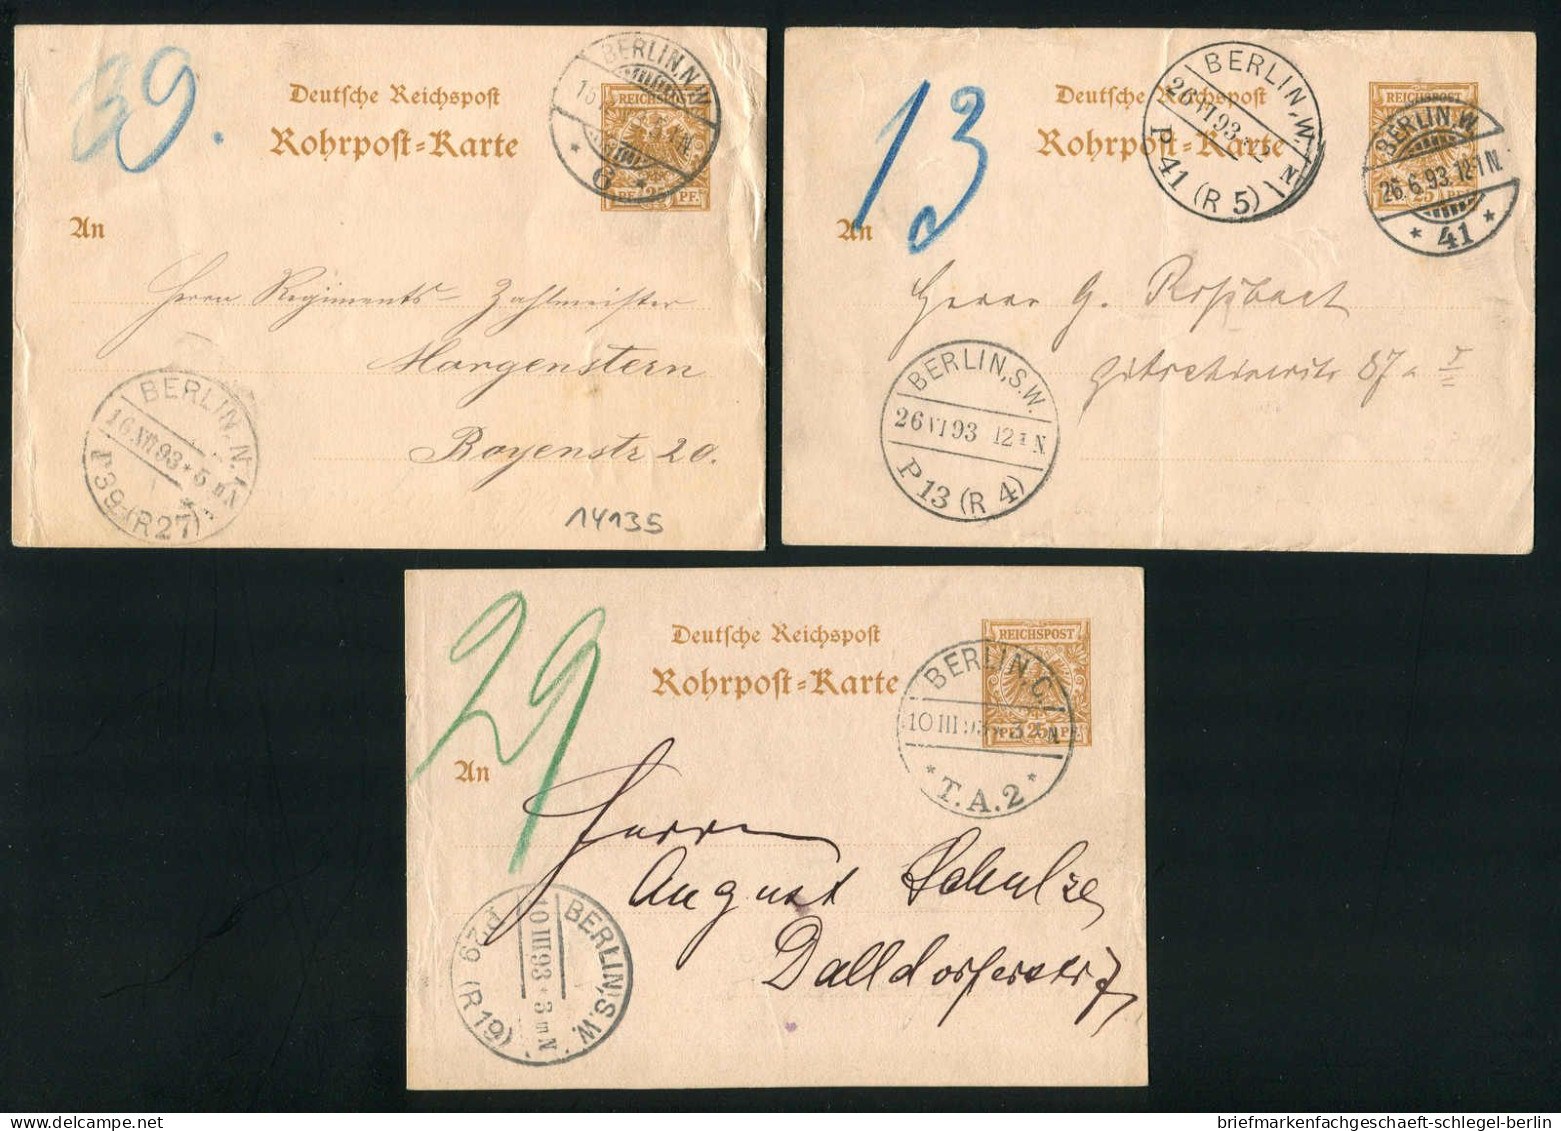 39.
Deutsche Reichspost
Rohrpost-Karte
BERLIN.N.W.
* 6 *
REICHSPOST
25 PF.
An
Herrn Regiments-Zahlmeister
Morgenstern
Boyenstr 20.
BERLIN, N.
16 XII 93 * 5
P 39 (R 27)
14135
13
Deutsche Reichspost
Rohrpost-Karte
BERLIN, W.
26 VI 93
P 41 (R 5)
REICHSPOST
25
BERLIN.W.
26.6.93.12-1N.
* 41 *
An
Herrn G. Roßbach
87a I
BERLIN, S.W.
26 VI 93 12 N.
P 13 (R 4)
29
Deutsche Reichspost
Rohrpost-Karte
REICHSPOST
PF 25 PF.
BERLIN, C.
10 III 93
* T. A. 2 *
An
Herrn
August Schulze
Dalldorferstr 7
BERLIN, S.W.
10 III 93 * 3 N
P 29 (R 19)
briefmarkenfachgeschaeft-schlegel-berlin